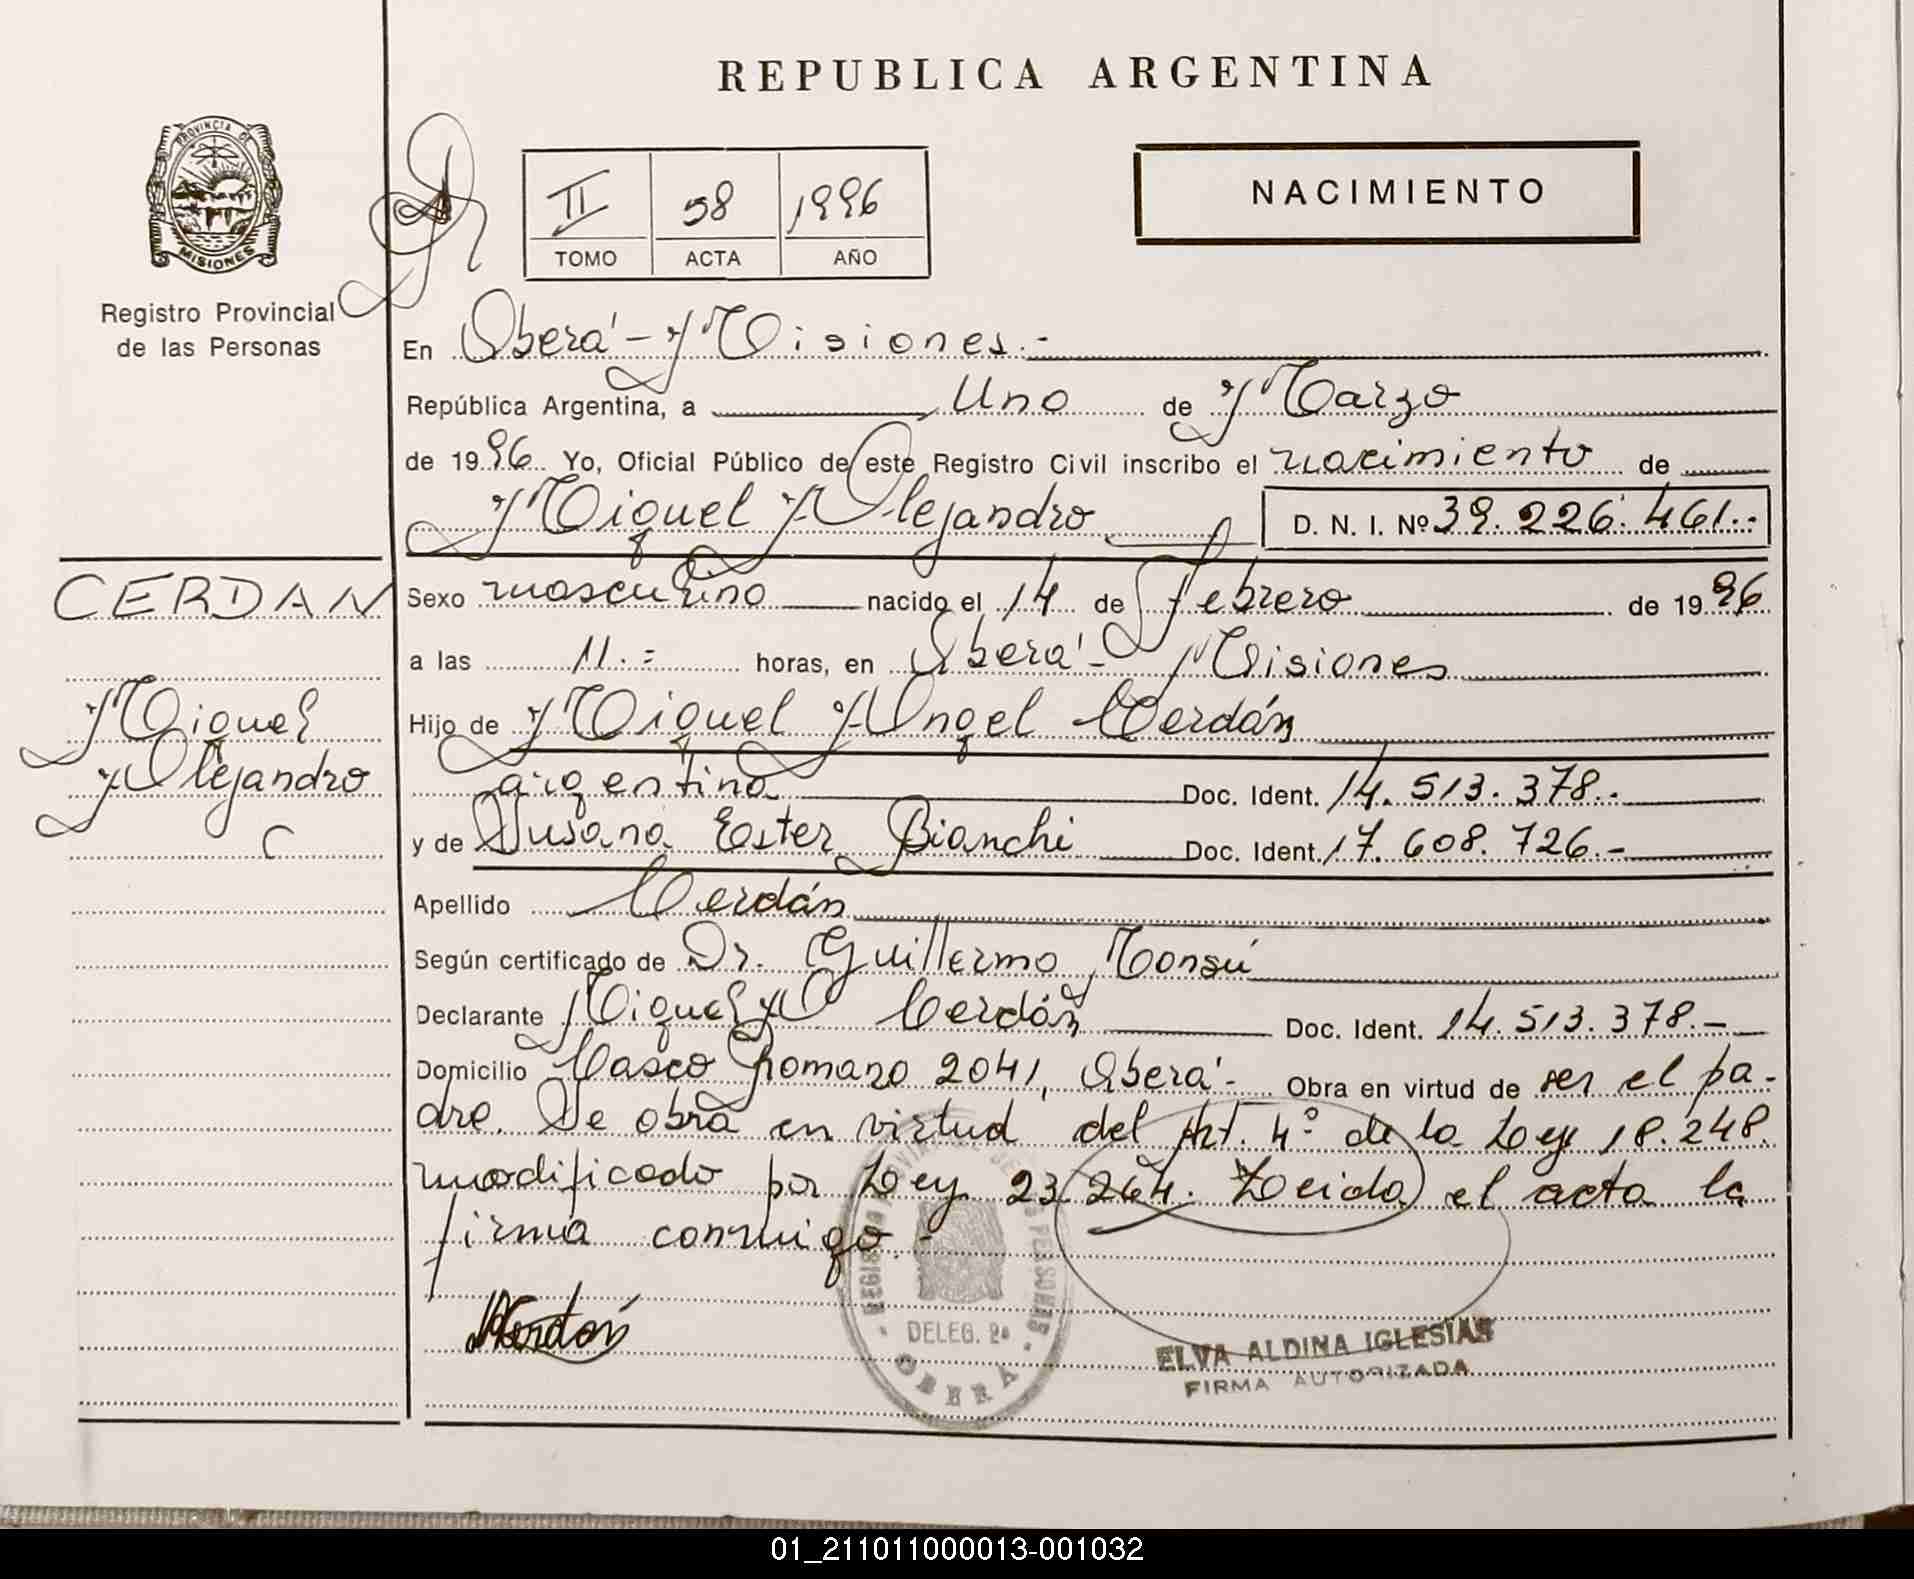 REPUBLICA ARGENTINA
PROVINCIA DE
MISIONES
Registro Provincial
de las Personas
II 58 1996
TOMO ACTA AÑO
NACIMIENTO
En Oberá - Misiones.-
República Argentina, a Uno de Marzo
de 1996 Yo, Oficial Público de este Registro Civil inscribo el nacimiento de
Miguel Alejandro D. N. I. Nº 39.226.461.-
CERDAN
Miguel
Alejandro
Sexo masculino nacido el 14 de Febrero de 1996
a las 11.= horas, en Oberá - Misiones
Hijo de Miguel Angel Cerdán
argentino Doc. Ident. 14.513.378.-
y de Susana Ester Bianchi Doc. Ident. 17.608.726.-
Apellido Cerdán
Según certificado de Dr. Guillermo Monsú
Declarante Miguel A Cerdán Doc. Ident. 14.513.378.-
Domicilio Casco Romano 2041, Oberá - Obra en virtud de ser el pa-
dre. Se obra en virtud del Art. 4º de la Ley 18.248.
modificado por Ley 23.264. Leida el acta la
firma conmigo.-
Cerdán
DELEG. 2ª
OBERA
ELVA ALDINA IGLESIAS
FIRMA AUTORIZADA
01_211011000013-001032